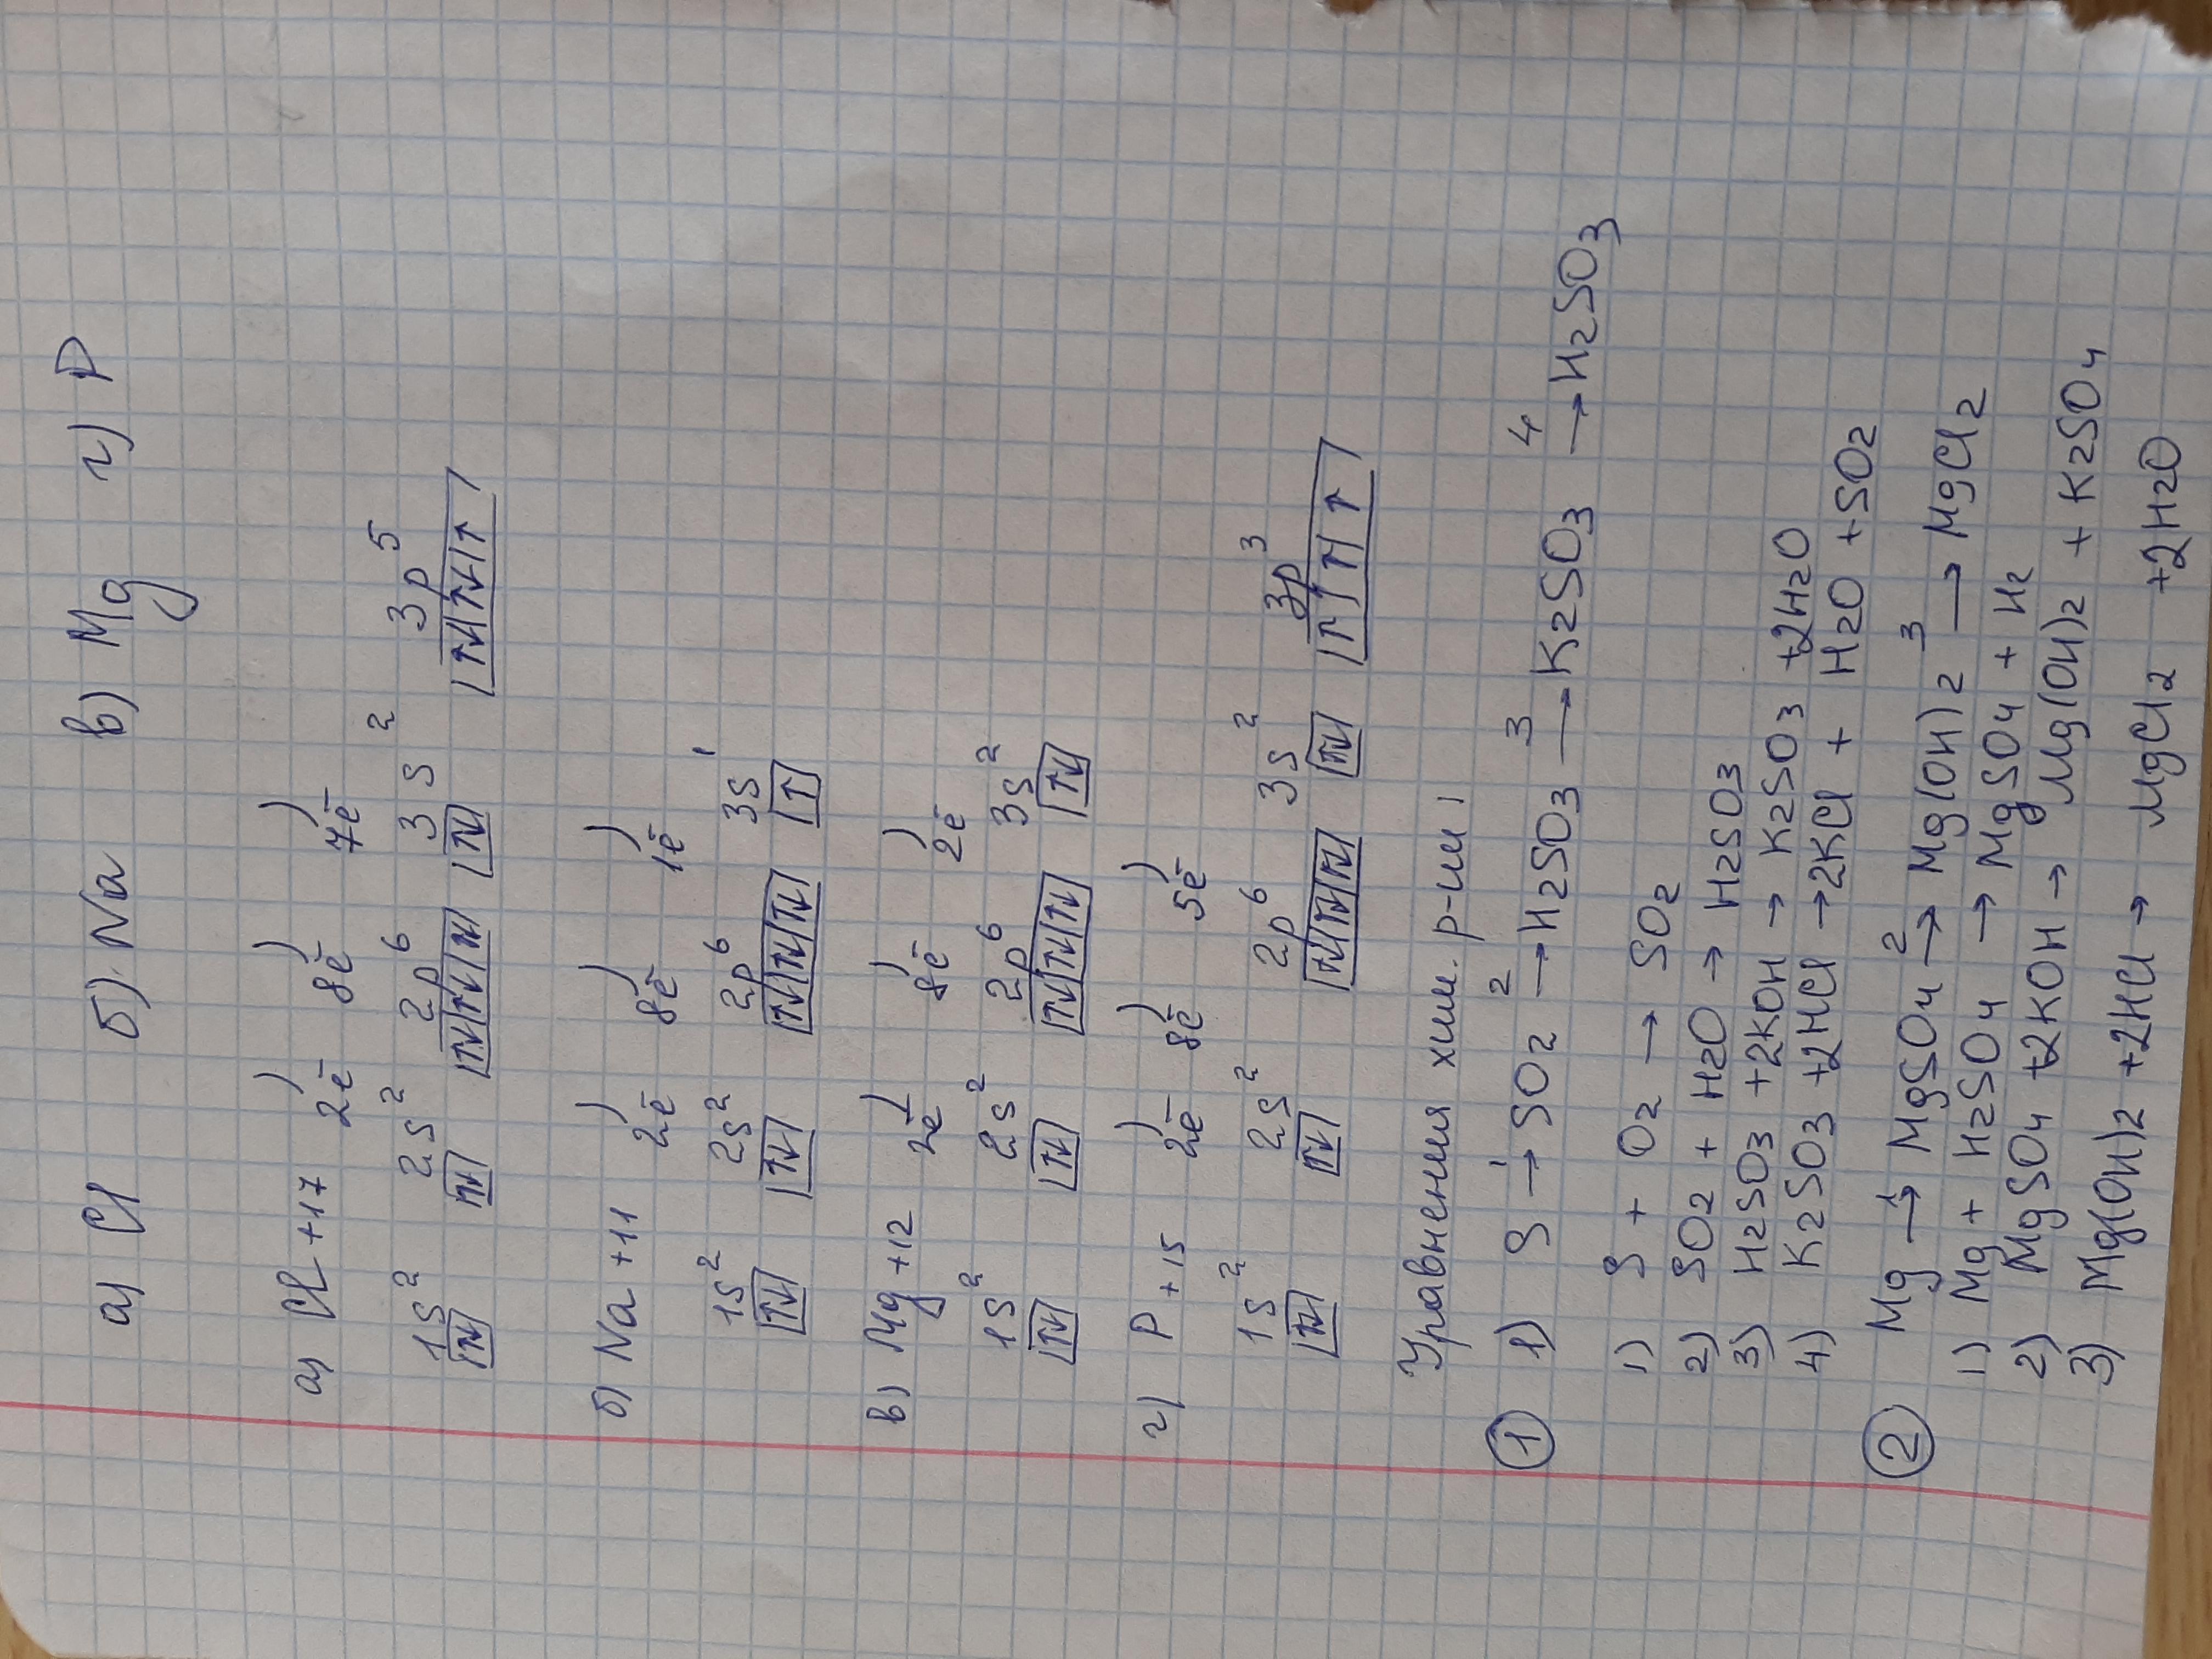 а) Cl б) Na в) Mg г) P
а) Cl +17 ) ) )
2ē 8ē 7ē
1s² 2s² 2p⁶ 3s² 3p⁵
↑↓ ↑↓ ↑↓ ↑↓ ↑↓ ↑↓ ↑↓ ↑↓ ↑
б) Na +11 ) ) )
2ē 8ē 1ē
1s² 2s² 2p⁶ 3s¹
↑↓ ↑↓ ↑↓ ↑↓ ↑↓ ↑
в) Mg +12 ) ) )
2ē 8ē 2ē
1s² 2s² 2p⁶ 3s²
↑↓ ↑↓ ↑↓ ↑↓ ↑↓ ↑↓
г) P +15 ) ) )
2ē 8ē 5ē
1s² 2s² 2p⁶ 3s² 3p³
↑↓ ↑↓ ↑↓ ↑↓ ↑↓ ↑↓ ↑ ↑ ↑
Уравнения хим. р-ий
① 1) S →¹ SO₂ →² H₂SO₃ →³ K₂SO₃ →⁴ H₂SO₃
1) S + O₂ → SO₂
2) SO₂ + H₂O → H₂SO₃
3) H₂SO₃ + 2KOH → K₂SO₃ + 2H₂O
4) K₂SO₃ + 2HCl → 2KCl + H₂O + SO₂
② Mg →¹ MgSO₄ →² Mg(OH)₂ →³ MgCl₂
1) Mg + H₂SO₄ → MgSO₄ + H₂
2) MgSO₄ + 2KOH → Mg(OH)₂ + K₂SO₄
3) Mg(OH)₂ + 2HCl → MgCl₂ + 2H₂O